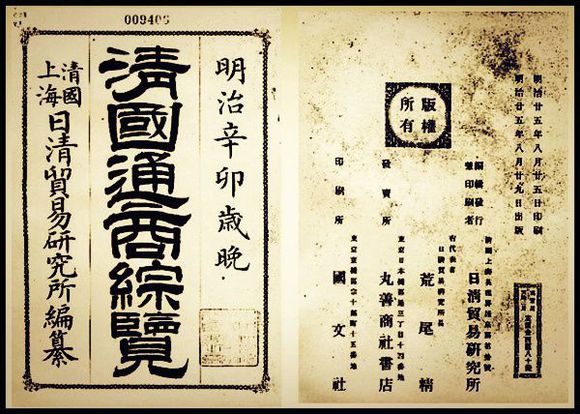 009406
明治辛卯歳晩
清國通商綜覽
清國
上海
日清貿易研究所編纂
明治廿五年八月廿五日印刷
明治廿五年八月廿九日出版
版權
所有
編輯發行
兼印刷者
日清貿易研究所
右代表者
日清貿易研究所長
荒尾精
發賣所
東京日本橋區通三丁目十四番地
丸善商社書店
印刷所
國文社